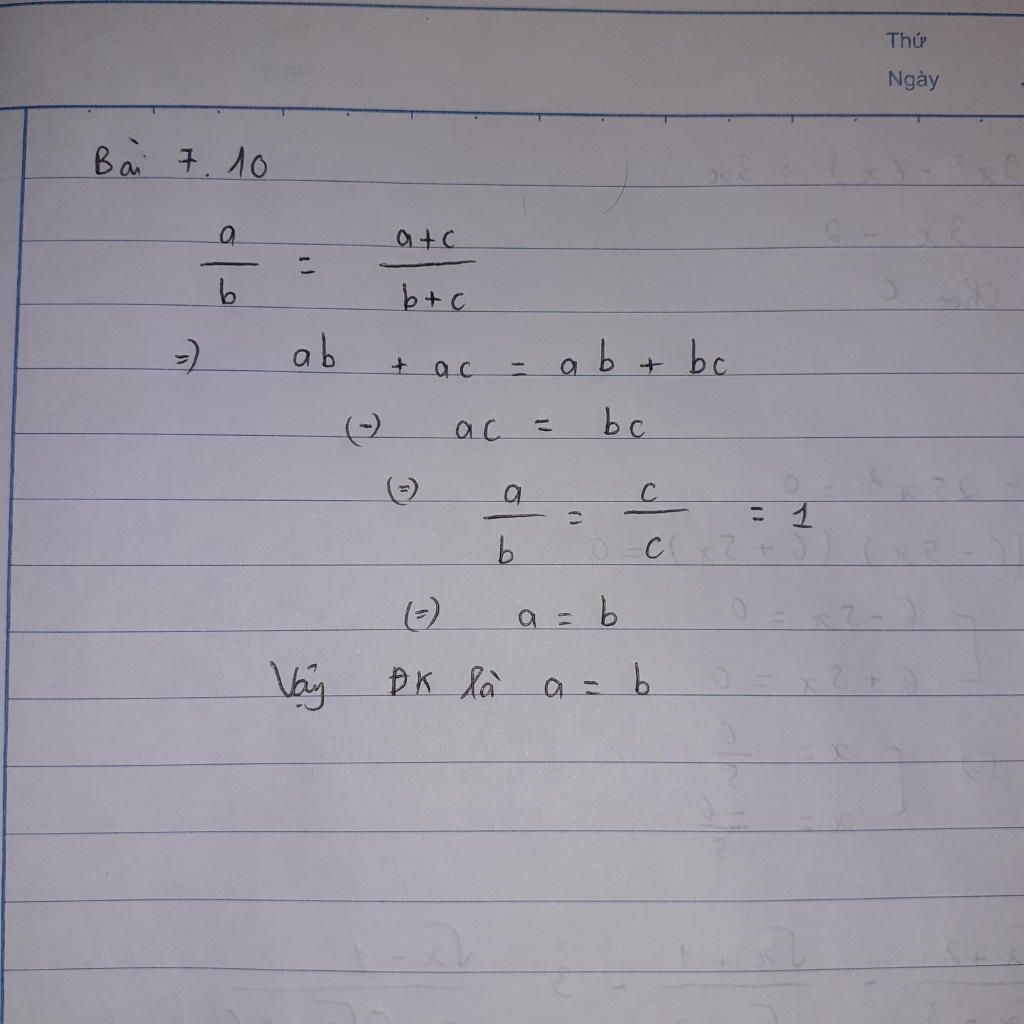 Thứ
Ngày
Bài 7.10
a/b = (a+c)/(b+c)
=) ab + ac = ab + bc
(-) ac = bc
(=) a/b = c/c = 1
(=) a = b
Vậy ĐK là a = b